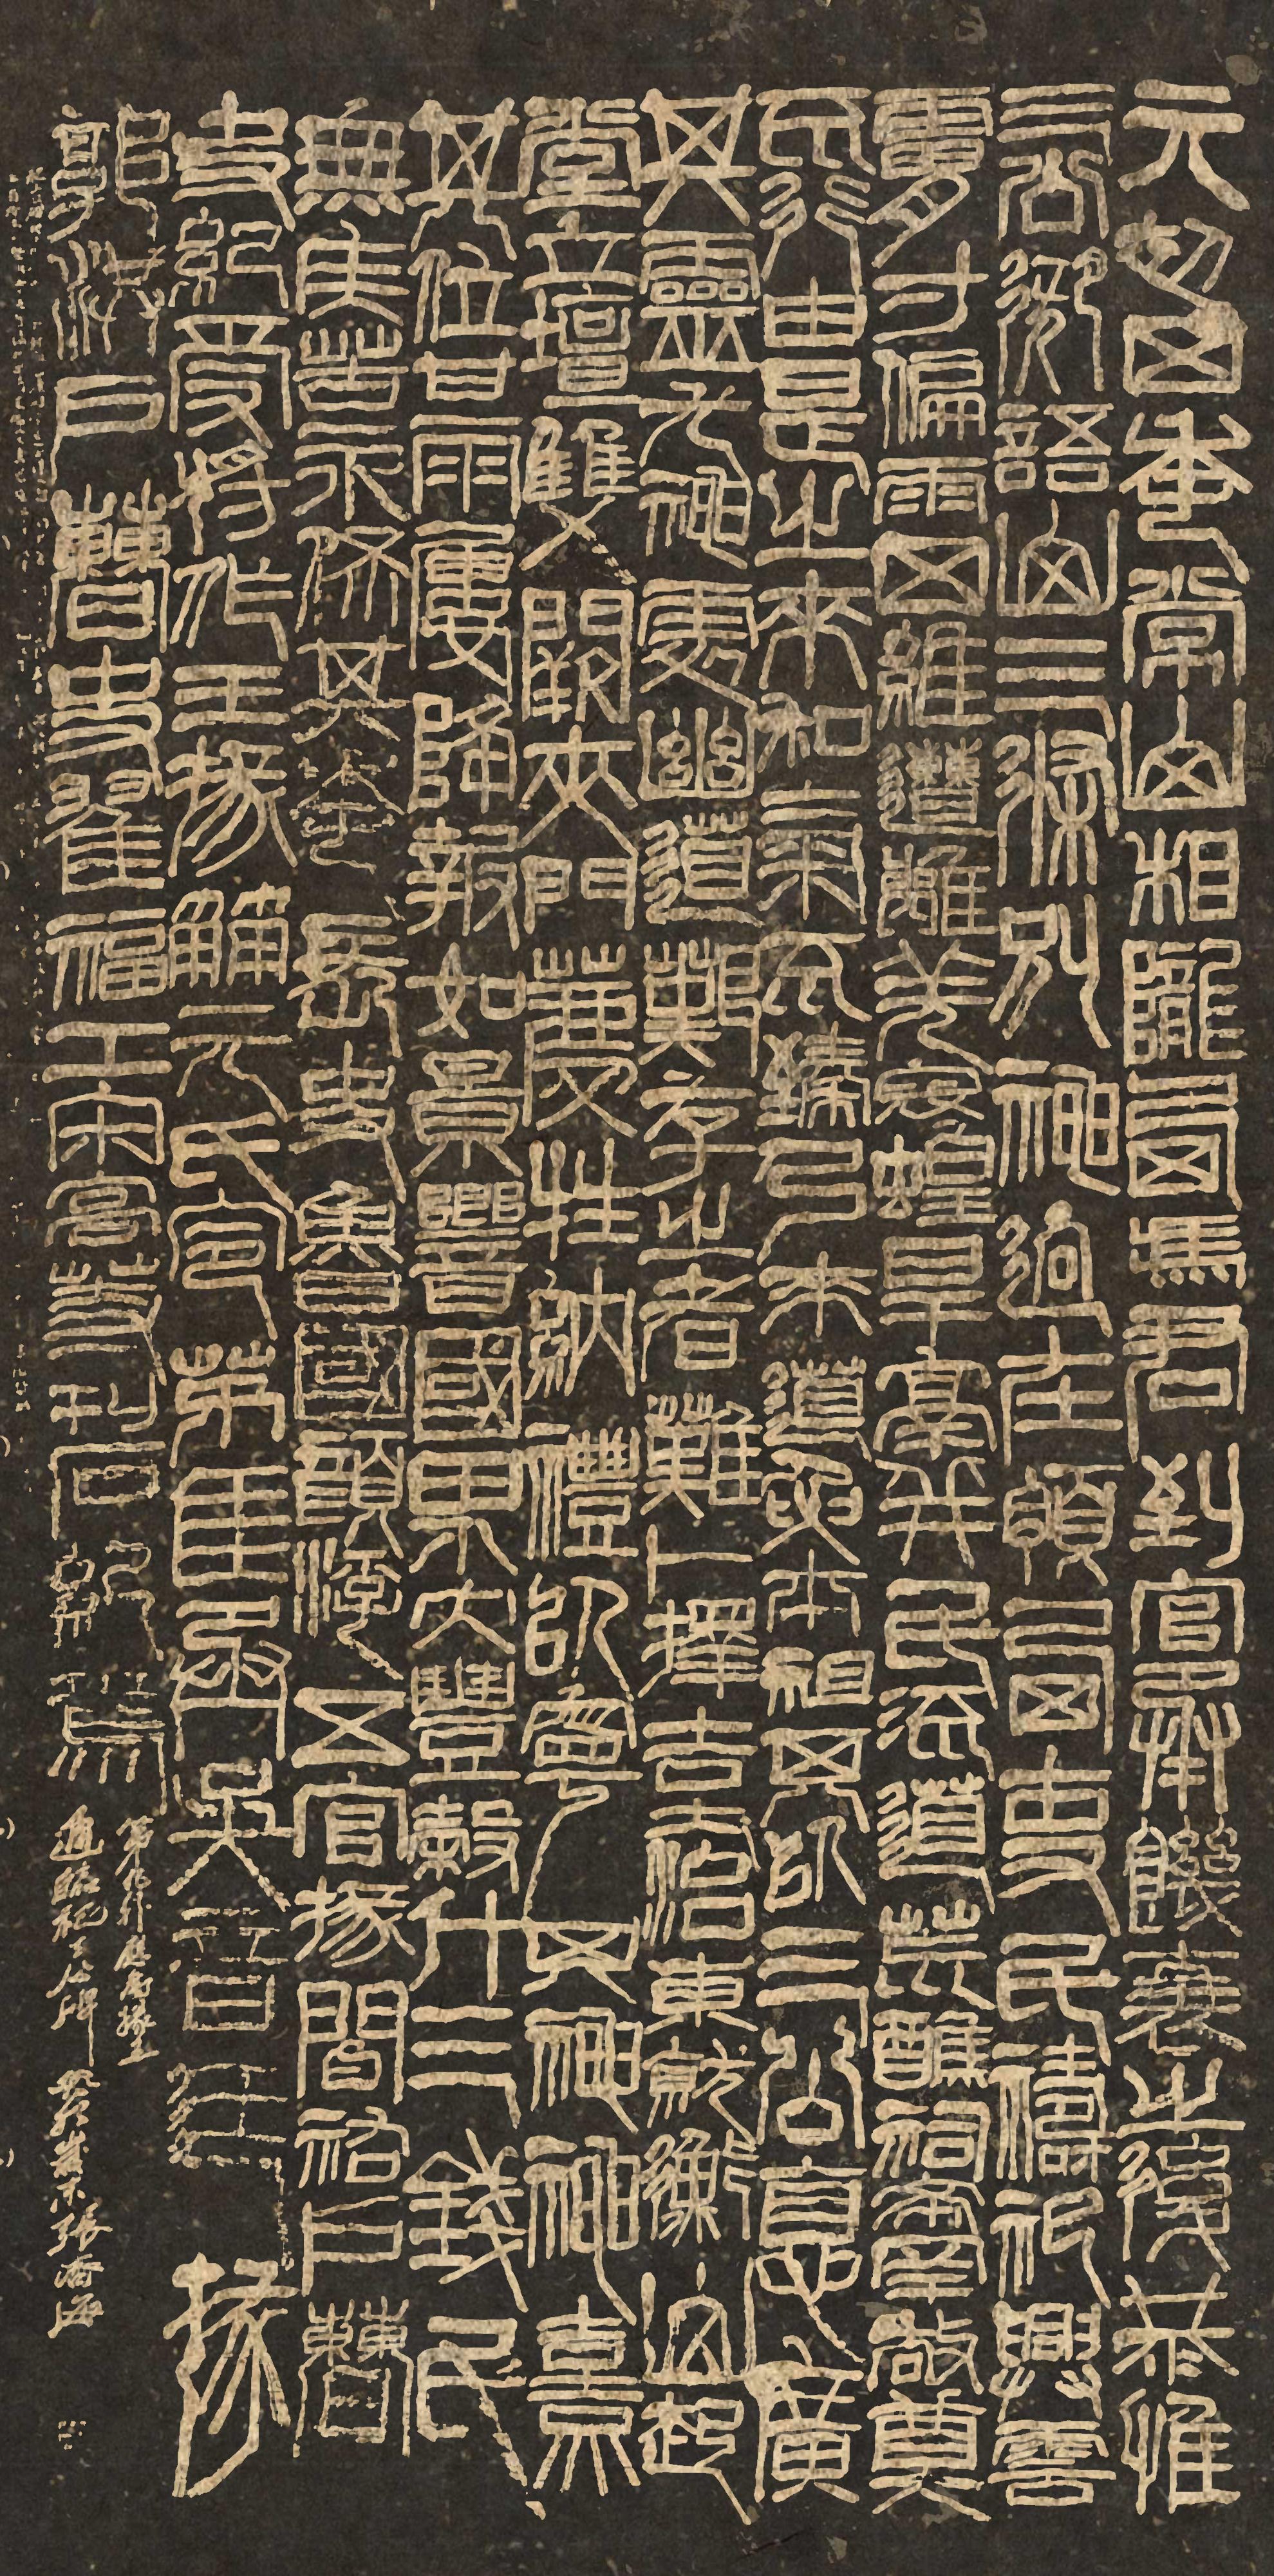 元初四年常山相隴西馮君到官承饑衰之後恭惟
三公御語山三條別神迥在領西吏民禱祀興雲
膚寸徧雨四維遭離羌寇蝗旱鬲并民流道荒醮祠希罕敬奠
不行由是之來和氣不臻乃求道要本祖其原以三公德廣
其靈尤神處幽道艱存之者難卜擇吉治東就衡山起
堂立壇雙闕夾門薦牲納禮以寧其神神熹
其位甘雨屢降報如景響國界大豐穀斗三錢民
無疾苦永保其年長史魯國顏浮五官掾閻祐戶曹
史紀受將作王掾元氏令茅匡丞吳音廷掾
郭洪戶曹史翟福工宋高等刊石紀焉
第九行應為掾王
臨祀三公碑 癸卯歲末張濟海